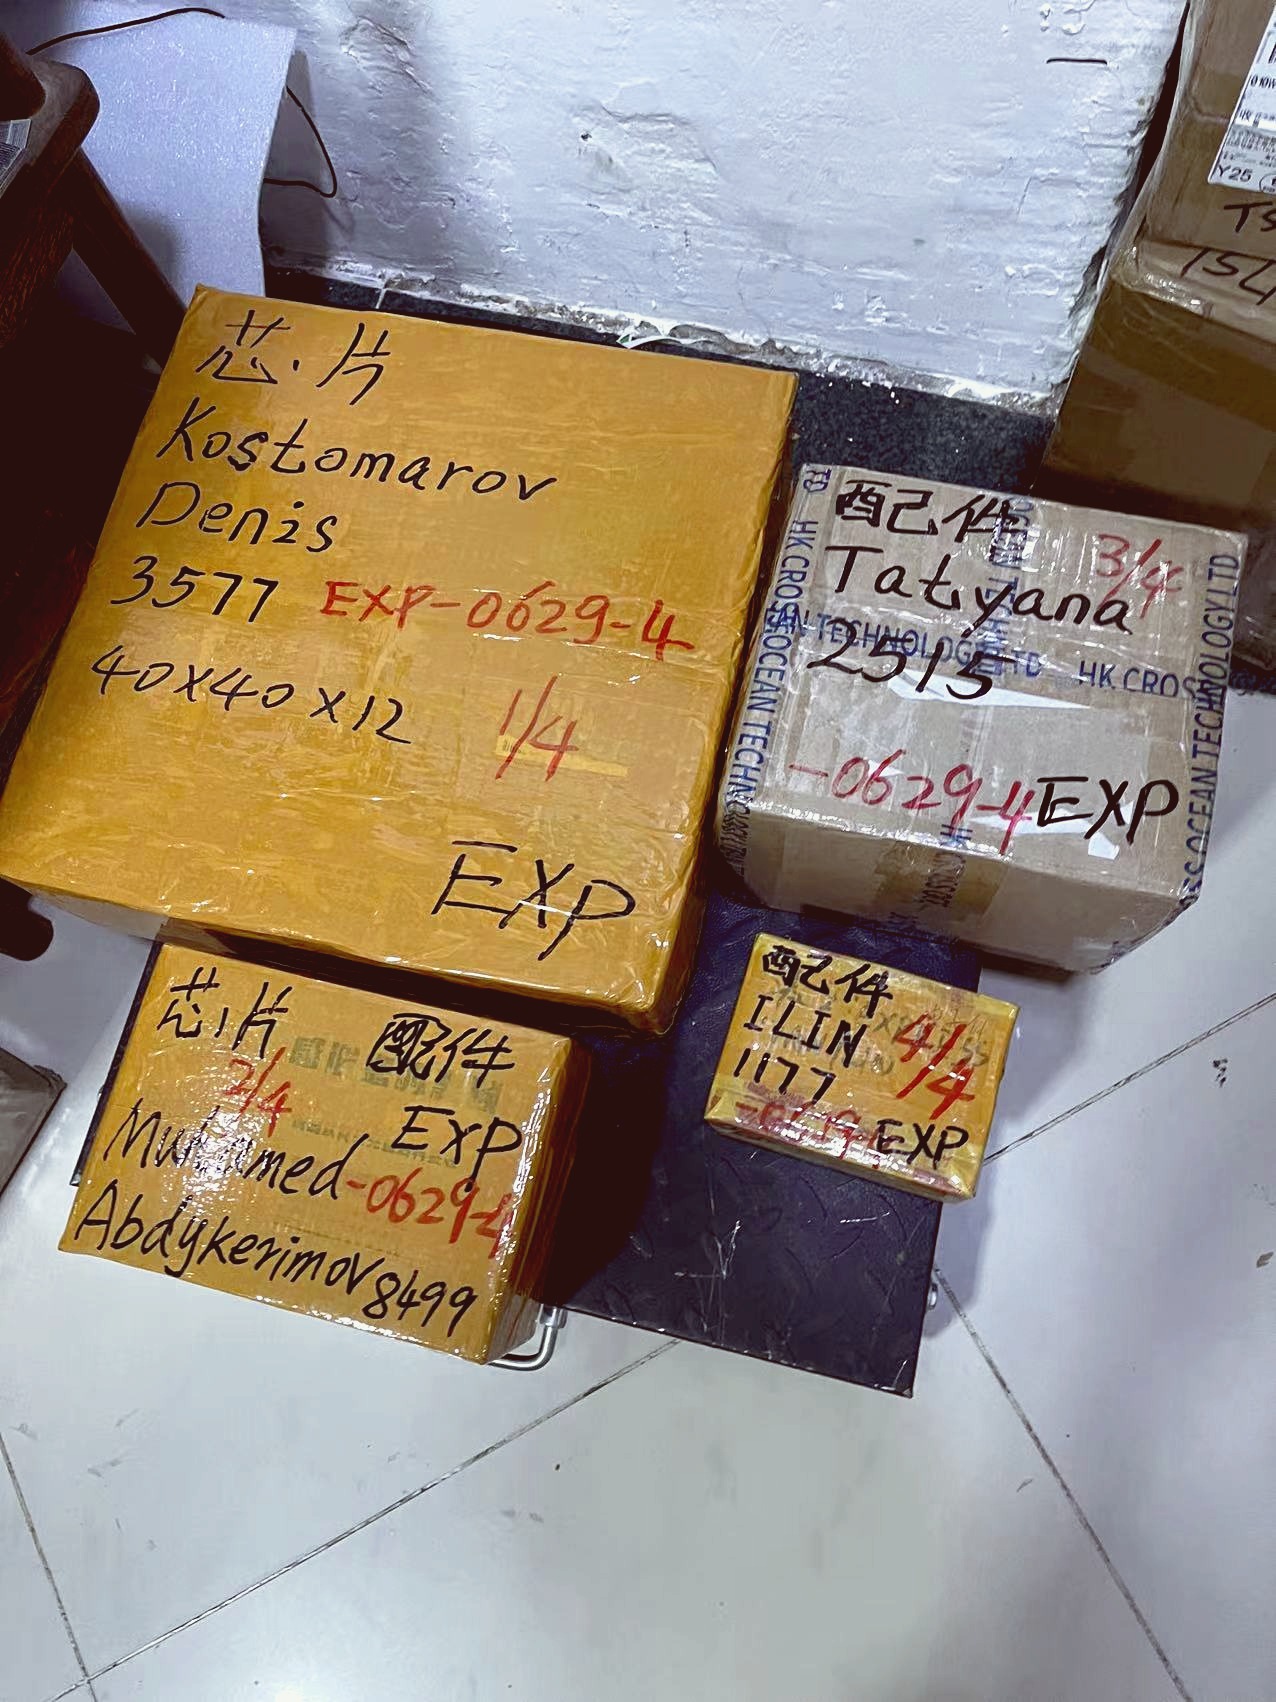 芯片
Kostomarov
Denis
3577 EXP-0629-4
40x40x12 1/4
EXP
配件 3/4
Tatyana
2515
-0629-4 EXP
HK CROS
OCEAN TECHNOLOGY LTD
芯片 配件
2/4 EXP
Muhamed -0629-4
Abdykerimov 8499
配件
ILIN 4/4
1177
EXP
Y25